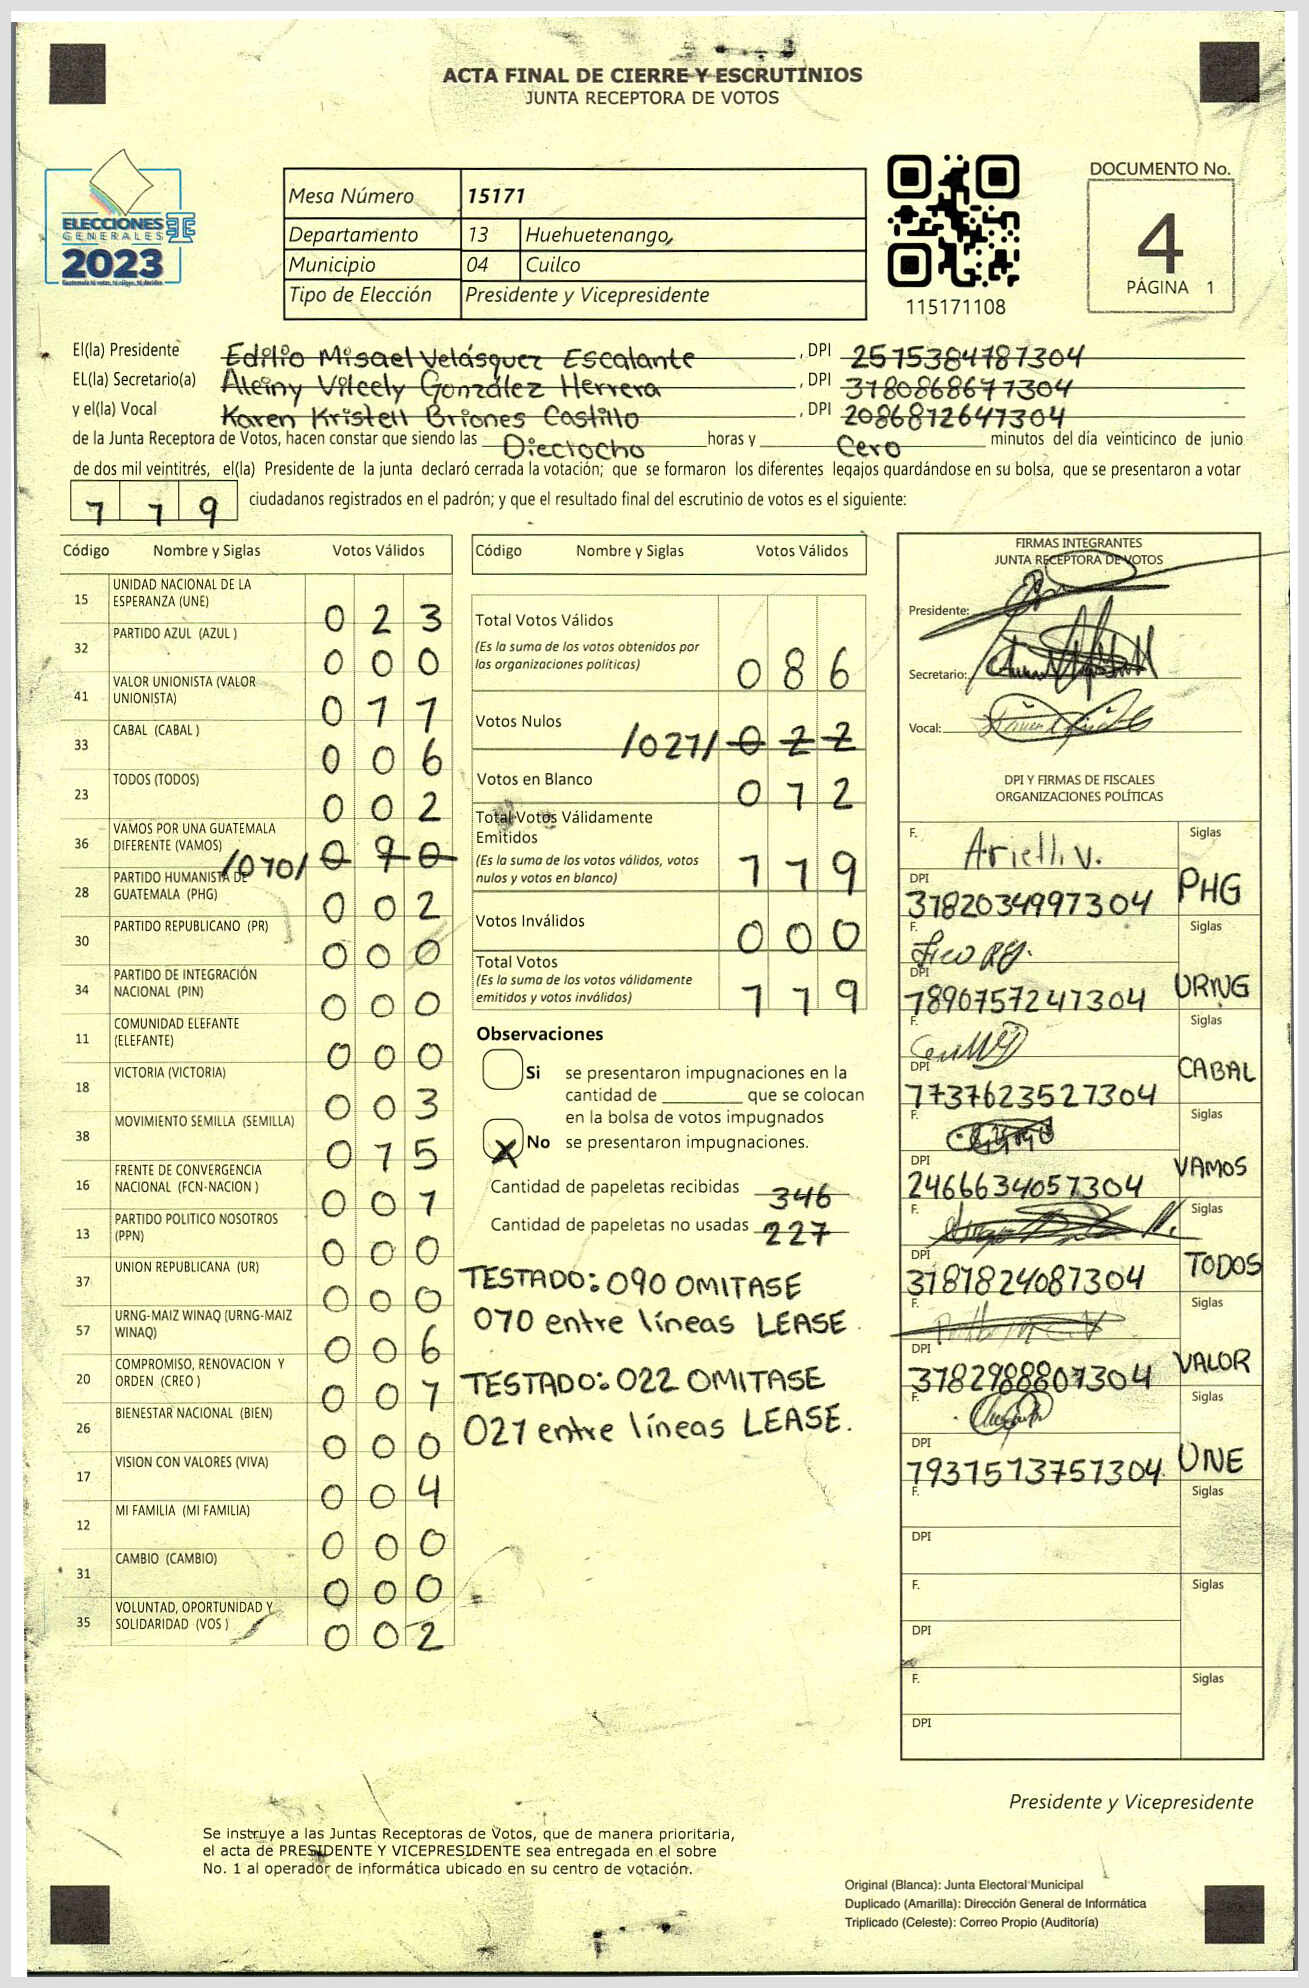 ACTA FINAL DE CIERRE Y ESCRUTINIOS
JUNTA RECEPTORA DE VOTOS
ELECCIONES
GENERALES
2023
Mesa Número 15171
Departamento 13 Huehuetenango
Municipio 04 Cuilco
Tipo de Elección Presidente y Vicepresidente
115171108
DOCUMENTO No.
4
PÁGINA 1
El(la) Presidente Edilio Misael Velásquez Escalante , DPI 2515384181304
EL(la) Secretario(a) Aleiny Vilcely González Herrera , DPI 3180868611304
y el(la) Vocal Karen Kristell Briones Castillo , DPI 2086812641304
de la Junta Receptora de Votos, hacen constar que siendo las Dieciocho horas y Cero minutos del día veinticinco de junio
de dos mil veintitrés, el(la) Presidente de la junta declaró cerrada la votación; que se formaron los diferentes legajos guardándose en su bolsa, que se presentaron a votar
1 1 9 ciudadanos registrados en el padrón; y que el resultado final del escrutinio de votos es el siguiente:
Código Nombre y Siglas Votos Válidos
15 UNIDAD NACIONAL DE LA ESPERANZA (UNE) 0 2 3
32 PARTIDO AZUL (AZUL ) 0 0 0
41 VALOR UNIONISTA (VALOR UNIONISTA) 0 1 1
33 CABAL (CABAL ) 0 0 6
23 TODOS (TODOS) 0 0 2
36 VAMOS POR UNA GUATEMALA DIFERENTE (VAMOS) /010/ 0 9 0
28 PARTIDO HUMANISTA DE GUATEMALA (PHG) 0 0 2
30 PARTIDO REPUBLICANO (PR) 0 0 0
34 PARTIDO DE INTEGRACIÓN NACIONAL (PIN) 0 0 0
11 COMUNIDAD ELEFANTE (ELEFANTE) 0 0 0
18 VICTORIA (VICTORIA) 0 0 3
38 MOVIMIENTO SEMILLA (SEMILLA) 0 1 5
16 FRENTE DE CONVERGENCIA NACIONAL (FCN-NACION ) 0 0 1
13 PARTIDO POLITICO NOSOTROS (PPN) 0 0 0
37 UNION REPUBLICANA (UR) 0 0 0
57 URNG-MAIZ WINAQ (URNG-MAIZ WINAQ) 0 0 6
20 COMPROMISO, RENOVACION Y ORDEN (CREO ) 0 0 1
26 BIENESTAR NACIONAL (BIEN) 0 0 0
17 VISION CON VALORES (VIVA) 0 0 4
12 MI FAMILIA (MI FAMILIA) 0 0 0
31 CAMBIO (CAMBIO) 0 0 0
35 VOLUNTAD, OPORTUNIDAD Y SOLIDARIDAD (VOS ) 0 0 2
Código Nombre y Siglas Votos Válidos
Total Votos Válidos
(Es la suma de los votos obtenidos por
las organizaciones políticas) 0 8 6
Votos Nulos /021/ 0 2 2
Votos en Blanco 0 1 2
Total Votos Válidamente
Emitidos
(Es la suma de los votos válidos, votos
nulos y votos en blanco) 1 1 9
Votos Inválidos 0 0 0
Total Votos
(Es la suma de los votos válidamente
emitidos y votos inválidos) 1 1 9
Observaciones
Si se presentaron impugnaciones en la
cantidad de ________ que se colocan
en la bolsa de votos impugnados
X No se presentaron impugnaciones.
Cantidad de papeletas recibidas 346
Cantidad de papeletas no usadas 227
TESTADO: 090 OMITASE
010 entre líneas LEASE.
TESTADO: 022 OMITASE
021 entre líneas LEASE.
FIRMAS INTEGRANTES
JUNTA RECEPTORA DE VOTOS
Presidente:
Secretario:
Vocal:
DPI Y FIRMAS DE FISCALES
ORGANIZACIONES POLÍTICAS
F. Arielli v. Siglas
DPI 3182034991304 PHG
F. Siglas
DPI 1890757241304 URNG
F. Siglas
DPI 1737623521304 CABAL
F. Siglas
DPI 2466634051304 VAMOS
F. Siglas
DPI 3181824081304 TODOS
F. Siglas
DPI 3182988801304 VALOR
F. Siglas
DPI 1931513751304 UNE
F. Siglas
DPI
F. Siglas
DPI
F. Siglas
DPI
Presidente y Vicepresidente
Se instruye a las Juntas Receptoras de Votos, que de manera prioritaria,
el acta de PRESIDENTE Y VICEPRESIDENTE sea entregada en el sobre
No. 1 al operador de informática ubicado en su centro de votación.
Original (Blanca): Junta Electoral Municipal
Duplicado (Amarilla): Dirección General de Informática
Triplicado (Celeste): Correo Propio (Auditoría)